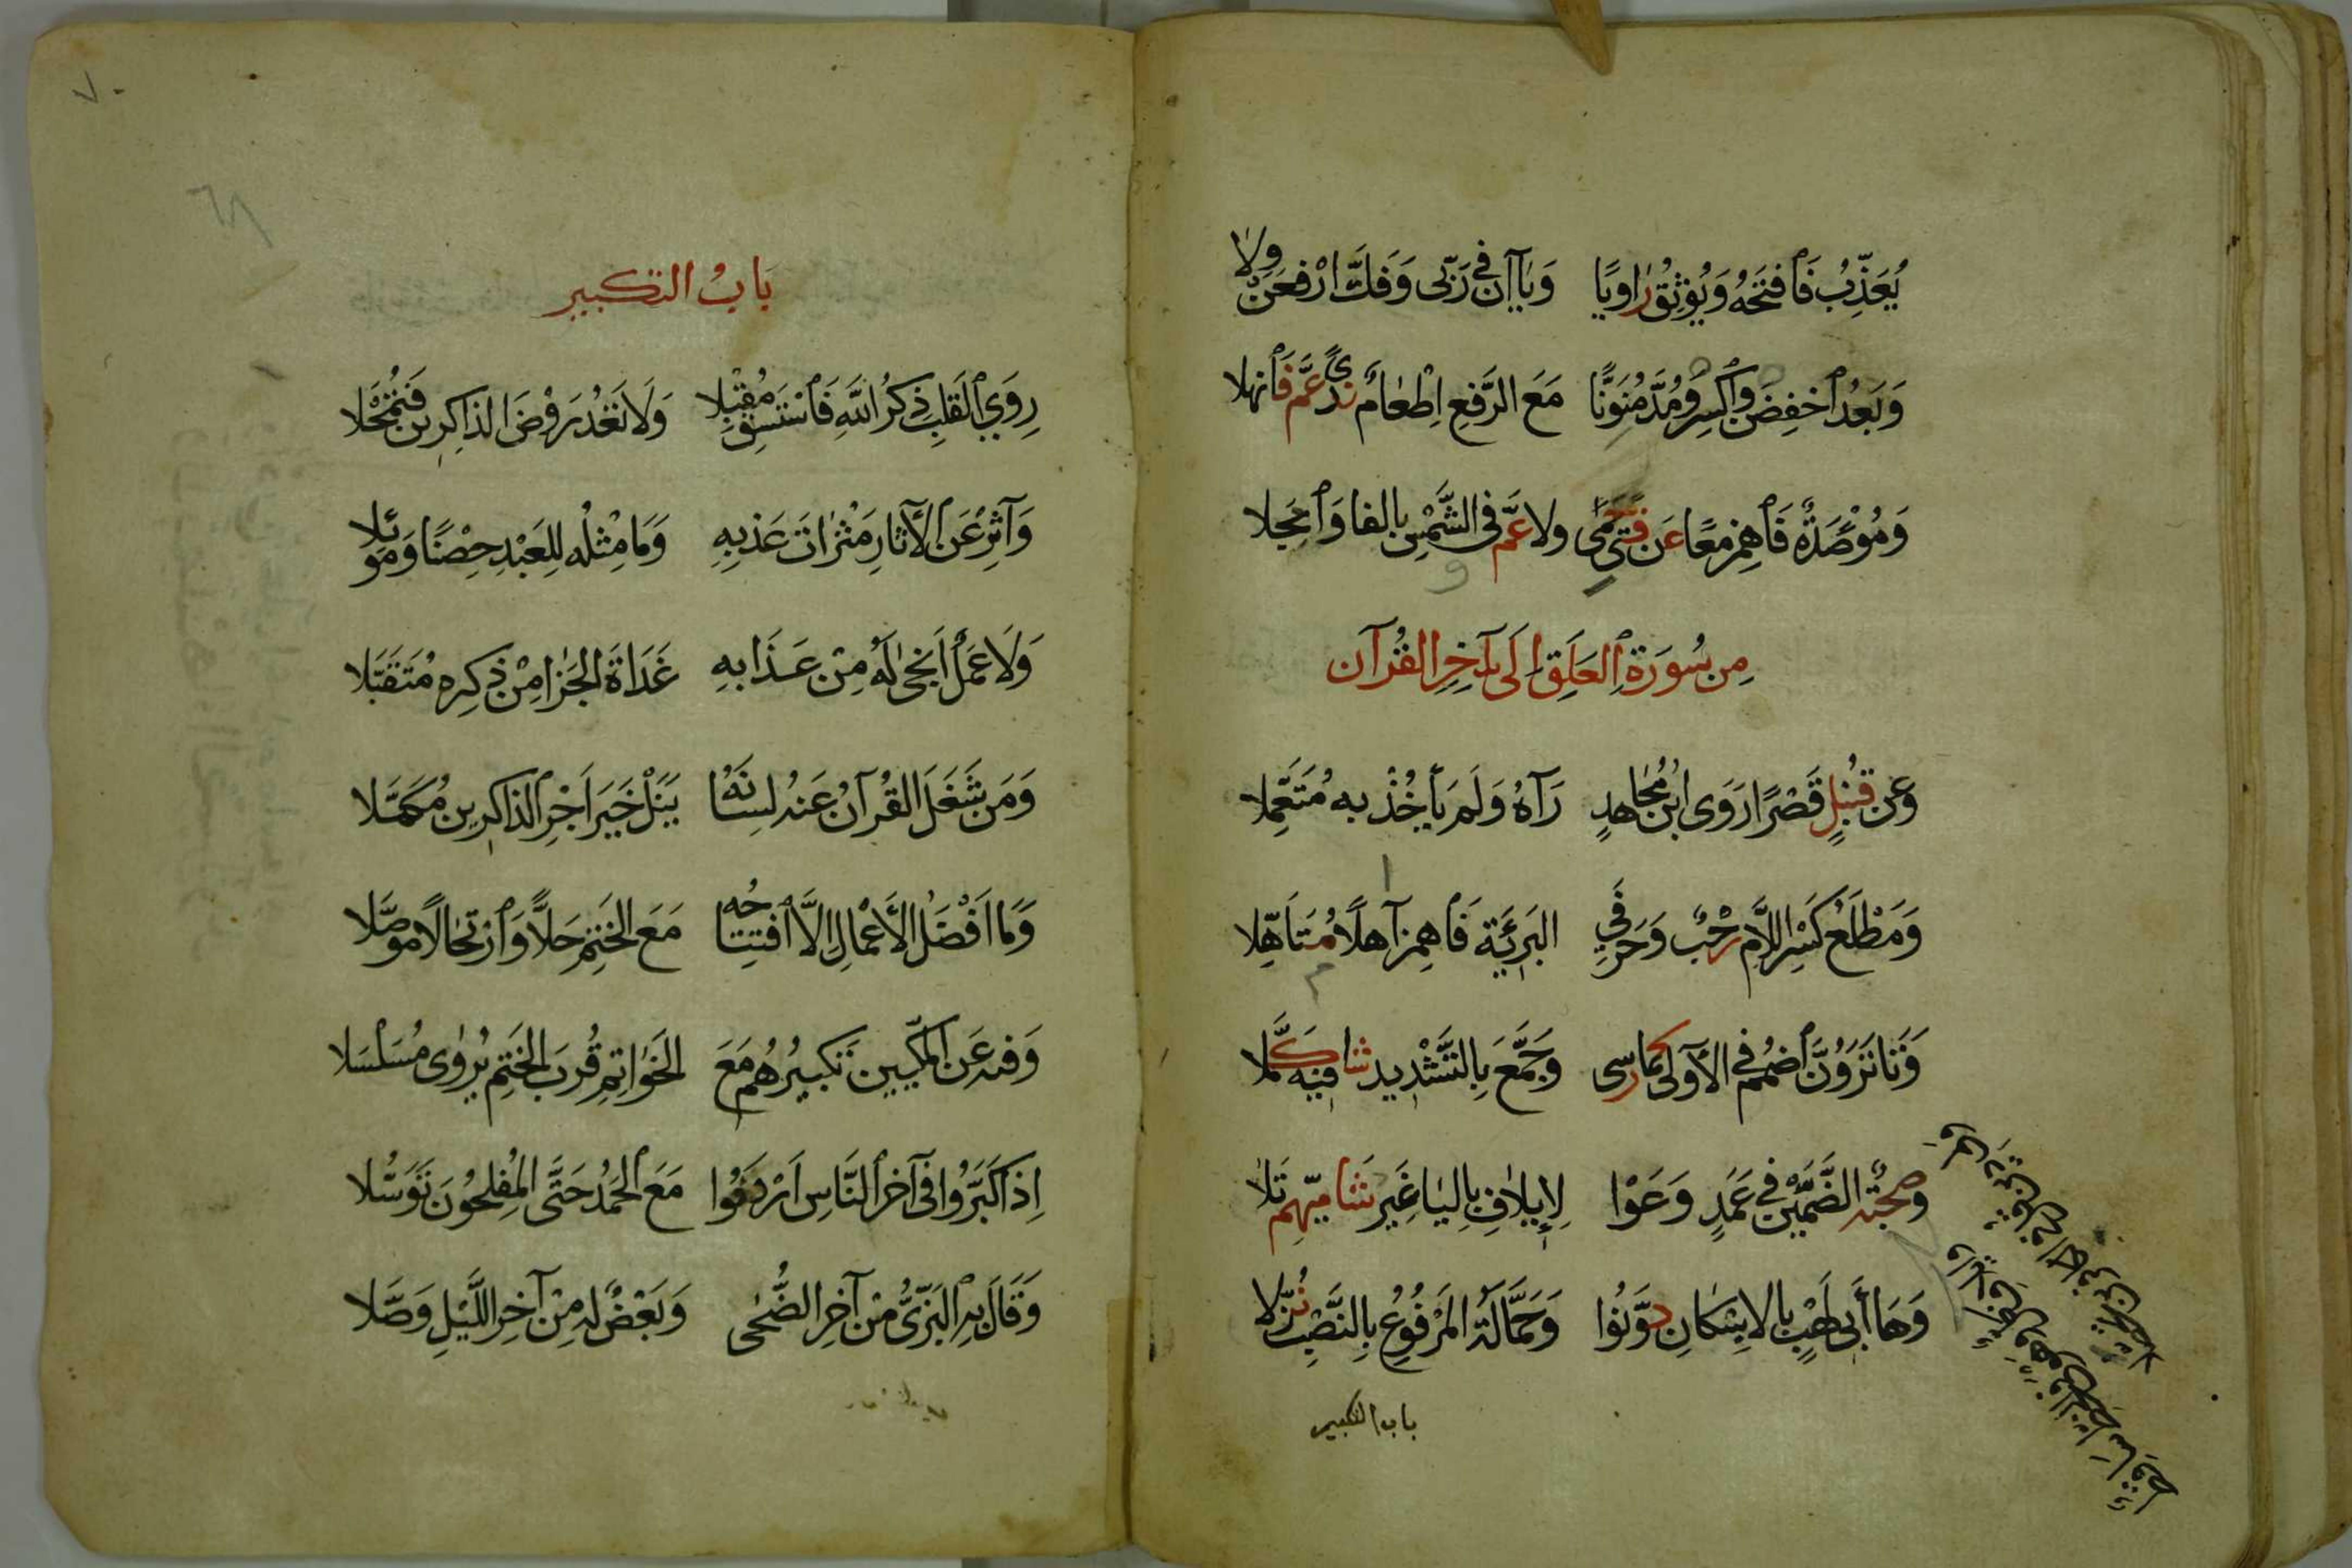 يُعَذِّبُ فَٱفتَحْهُ وَيُوْثِقُ رَاوِيًا وَيَاآنِ فِي رَبِّى وَفَكَّ ارْفَعَنْ وِلَا
وَبَعْدُ ٱخفِضَنْ وَٱكْسِرْ وَمُدَّ مُنَوِّنًا مَعَ الرَّفعِ اِطْعَامٌ نَدًى عَمَّ فَٱنهلا
وَمُؤْصَدَةٌ فَٱهمِز معًا عَن فَتًى حِمًى ولا عَمَّ فى الشَّمْسِ بالفا وَٱنجلا
مِن سُورَةِ ٱلعَلَقِ اِلَى آخِرِ القُرآن
وعن قُنبُلٍ قَصْرًا رَوَى ابْنُ مُجَاهدٍ رَآهُ وَلَم يَأخُذْ به مُتَعَمِّلا
وَمَطْلَعِ كَسْرُ اللَّامِ رَحْبٌ وَحَرفَيِ البَرِيَّةِ فَٱهمِز آهلًا مُتَأَهِّلا
وَتَا تَرَوُنَّ ٱضمُم فِي الأولَى كما رسى وَجَمَّعَ بِالتَّشْدِيدِ شافيه كَمَّلا
وصحبة الضَّمَّيْنِ فِي عَمَدٍ وَعَوْا لِإِيلَافِ بِاليَا غَيرُ شَاميِّهِم تَلَا
وَهَا أَبِى لَهْبٍ بالاِسْكَانِ دَوَّنُوا وَحَمَّالَةُ المَرْفُوعُ بِالنَّصْبِ نُزِّلَا
باب التكبير
٧٠
٦٨
بَابُ التكبير
رِوَي ٱلقَلبِ ذِكرُ اللهِ فَٱسْتَسقِ مُقْبِلا وَلَا تَعْدُ رَوْضَ الذاكِرِين فَتُمْحَلا
وَآثِرْ عَنِ ٱلآثارِ مَثْرَاتَ عَذبِهِ وَمَا مِثْلُه لِلعَبْدِ حِصْنًا وَمَوئِلا
وَلَا عَمَلٌ اَنجَى لَهُ مِنْ عَذَابِهِ غَدَاةَ الجَزا مِنْ ذِكرِهِ مُتَقَبَّلا
وَمَن شَغَلَ القُرآنُ عَنهُ لِسَانَهُ يَنَلْ خَيرَ اَجْرِ ٱلذاكرين مُكَمَّلا
وَمَا اَفْضَلُ الأَعْمَالِ اِلَّا ٱفتِتَاحُه مَعَ الخَتْمِ حَلًّا وَٱرتحَالًا موصَّلا
وَفيه عَنِ المَكِّيينَ تَكبيرُهُم مَعَ الخَوَاتِمِ قُربَ الخَتمِ يُروَى مُسَلْسَلا
اِذَا كَبَّرُوا فى آخرِ ٱلنَّاسِ اَرْدَفُوا مَعَ ٱلحَمْدِ حَتَّى المُفلِحُونَ تَوَسُّلا
وَقَالَ بِهِ ٱلبَزِّيُّ مِنْ آخِرِ الضُّحَى وَبَعْضٌ لَه مِنْ آخِرِ اللَّيْلِ وَصَّلا